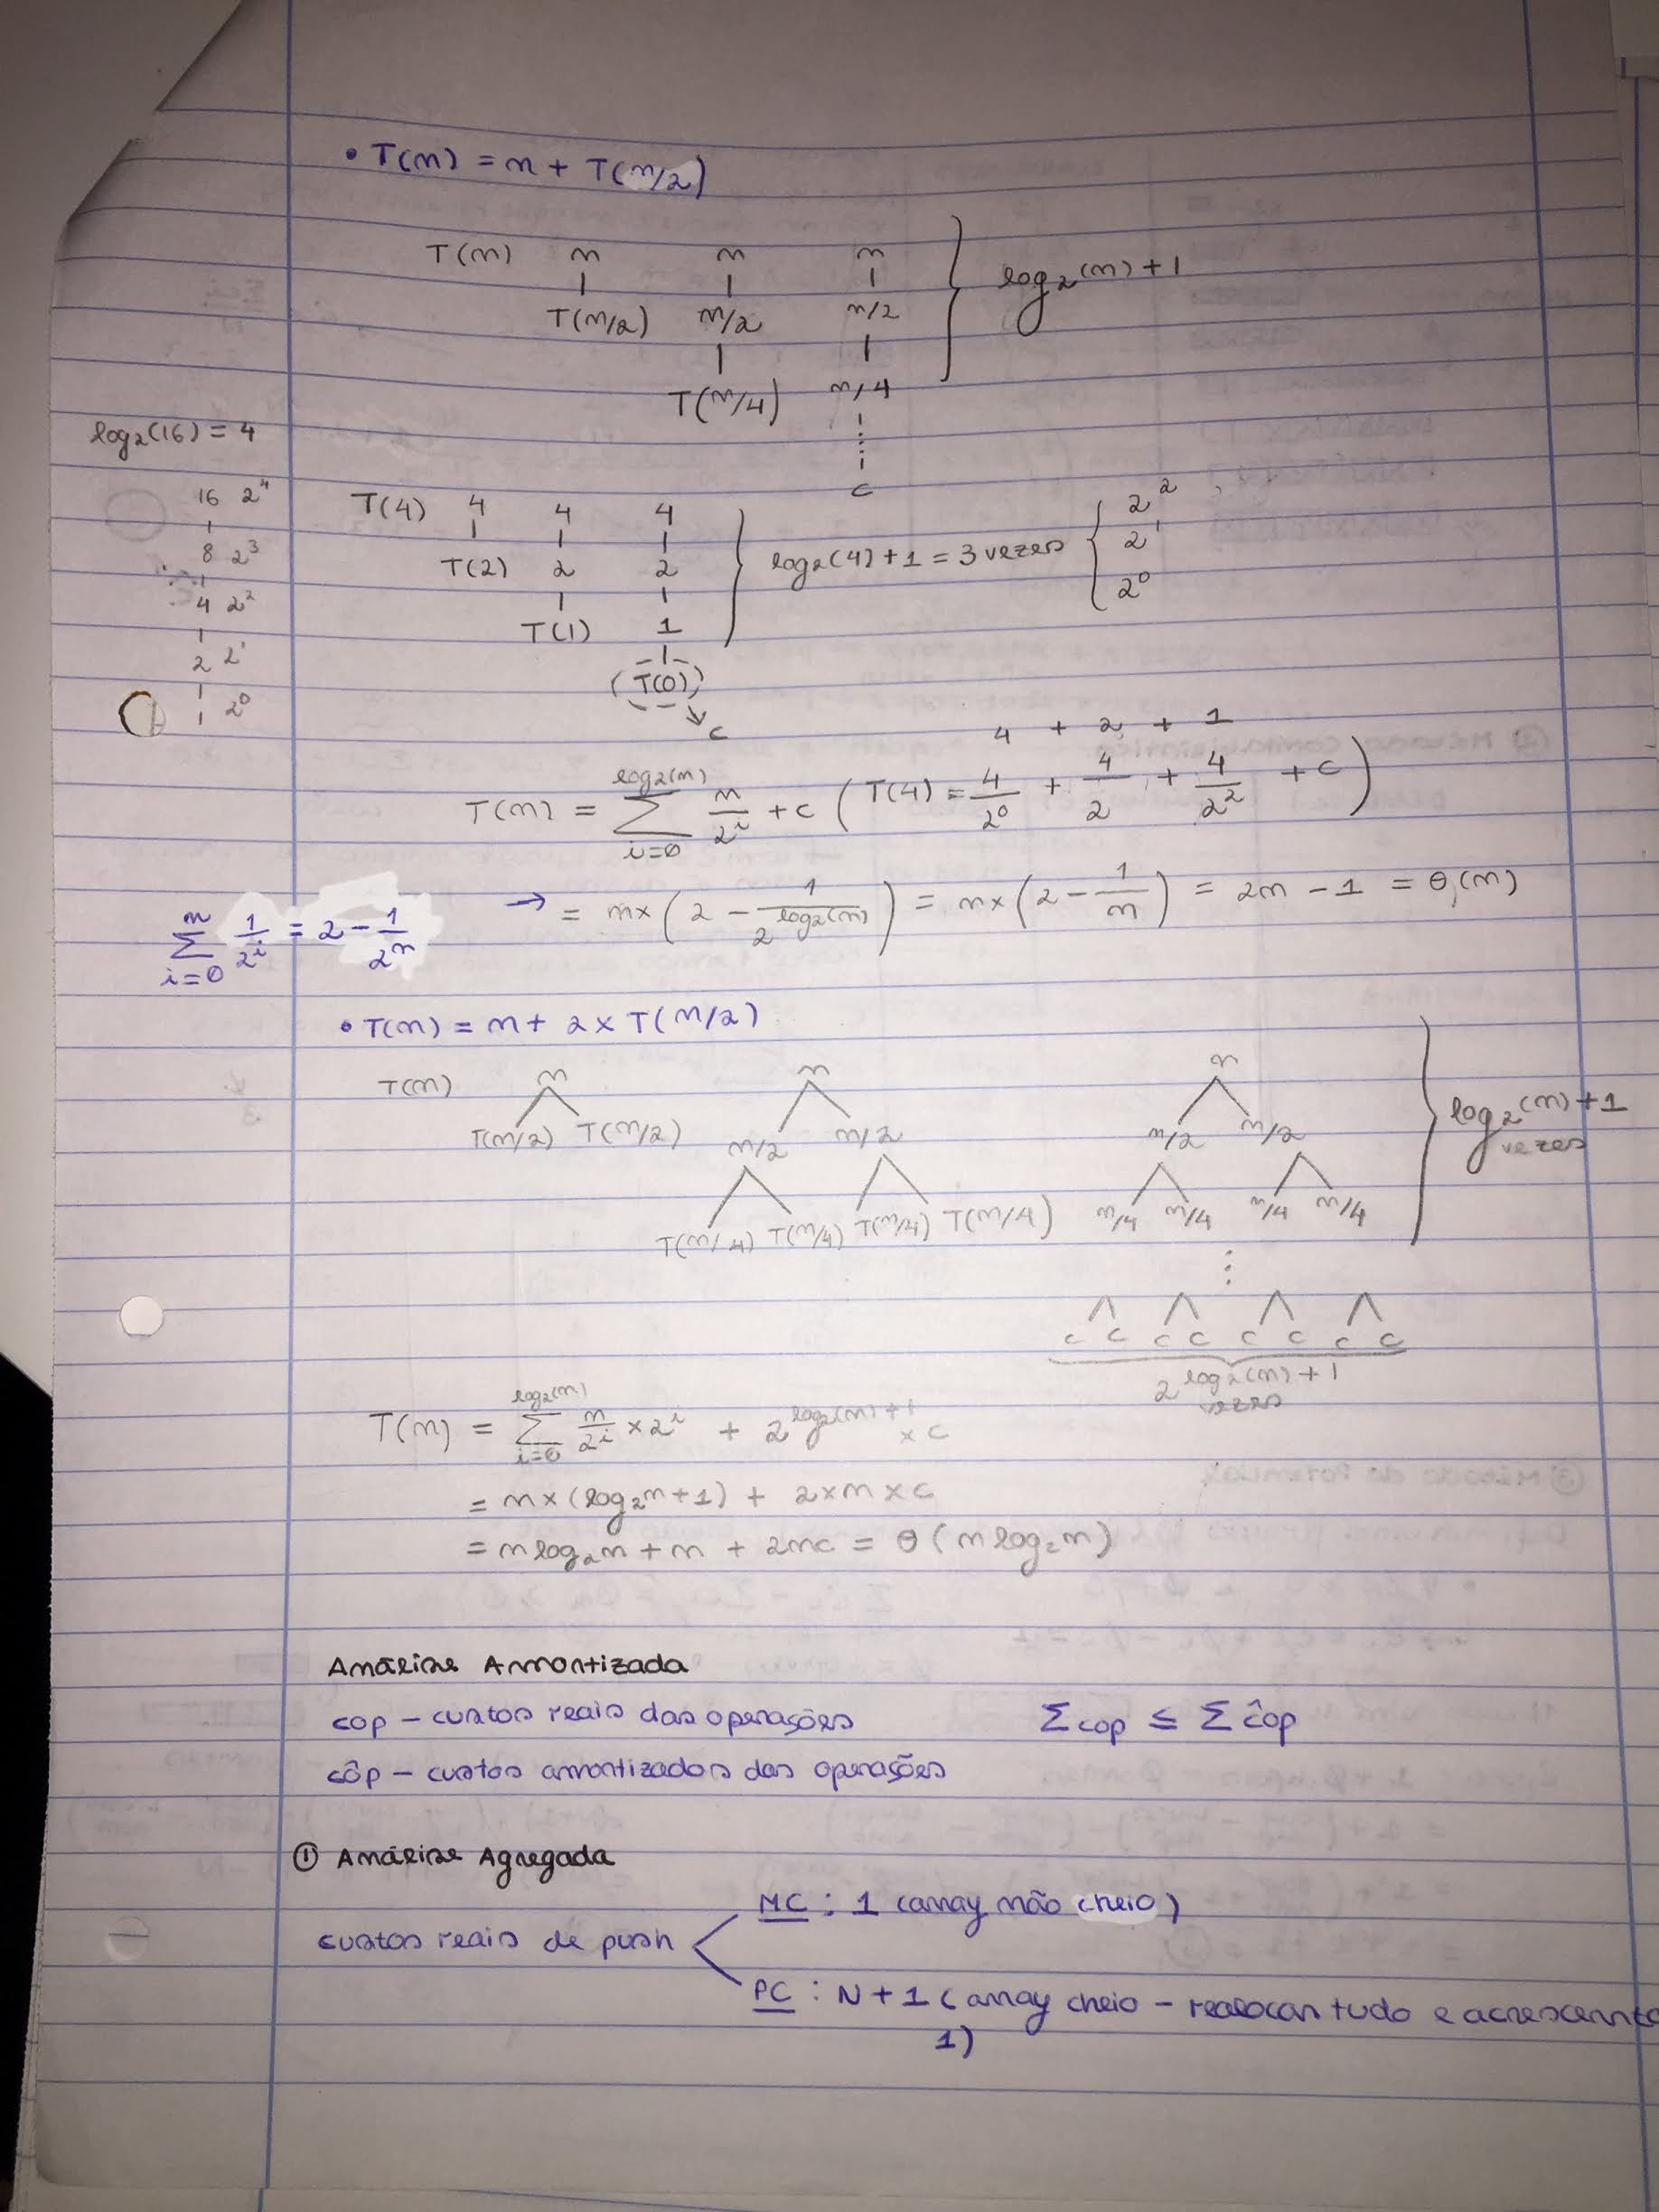 • T(n) = n + T(n/2)
T(n) n n n
T(n/2) n/2 n/2
T(n/4) n/4
c
log₂(n) + 1
log₂(16) = 4
16 2⁴
8 2³
4 2²
2 2¹
1 2⁰
T(4) 4 4 4
T(2) 2 2
T(1) 1
(T(0))
c
log₂(4) + 1 = 3 vezes
2²
2¹
2⁰
4 + 2 + 1
T(n) = Σ_{i=0}^{log₂(n)} n/2^i + c ( T(4) = 4/2⁰ + 4/2 + 4/2² + c )
Σ_{i=0}^{n} 1/2^i = 2 - 1/2^n
→ = n × ( 2 - 1/2^{log₂(n)} ) = n × ( 2 - 1/n ) = 2n - 1 = θ(n)
• T(n) = n + 2 × T(n/2)
T(n) n n n
T(n/2) T(n/2) n/2 n/2 n/2 n/2
T(n/4) T(n/4) T(n/4) T(n/4) n/4 n/4 n/4 n/4
log₂(n) + 1
vezes
c c c c c c c c
2^{log₂(n)+1}
vezes
T(n) = Σ_{i=0}^{log₂(n)} n/2^i × 2^i + 2^{log₂(n)+1} × c
= n × (log₂n + 1) + 2 × n × c
= n log₂n + n + 2nc = θ(n log₂n)
Análise Amortizada
cop – custos reais das operações Σcop ≤ Σĉop
côp – custos amortizados das operações
① Análise Agregada
custos reais de push
MC : 1 (array não cheio)
PC : N + 1 (array cheio – realocar tudo e acrescenta
1)